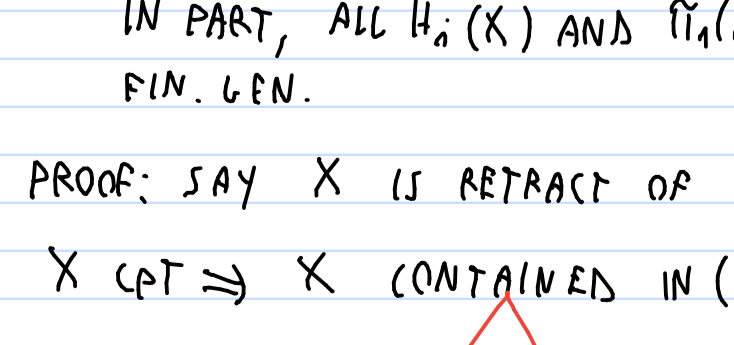 IN PART, ALL Hi(X) AND π1(
FIN. GEN.
PROOF: SAY X IS RETRACT OF
X CPT ⇒ X CONTAINED IN (